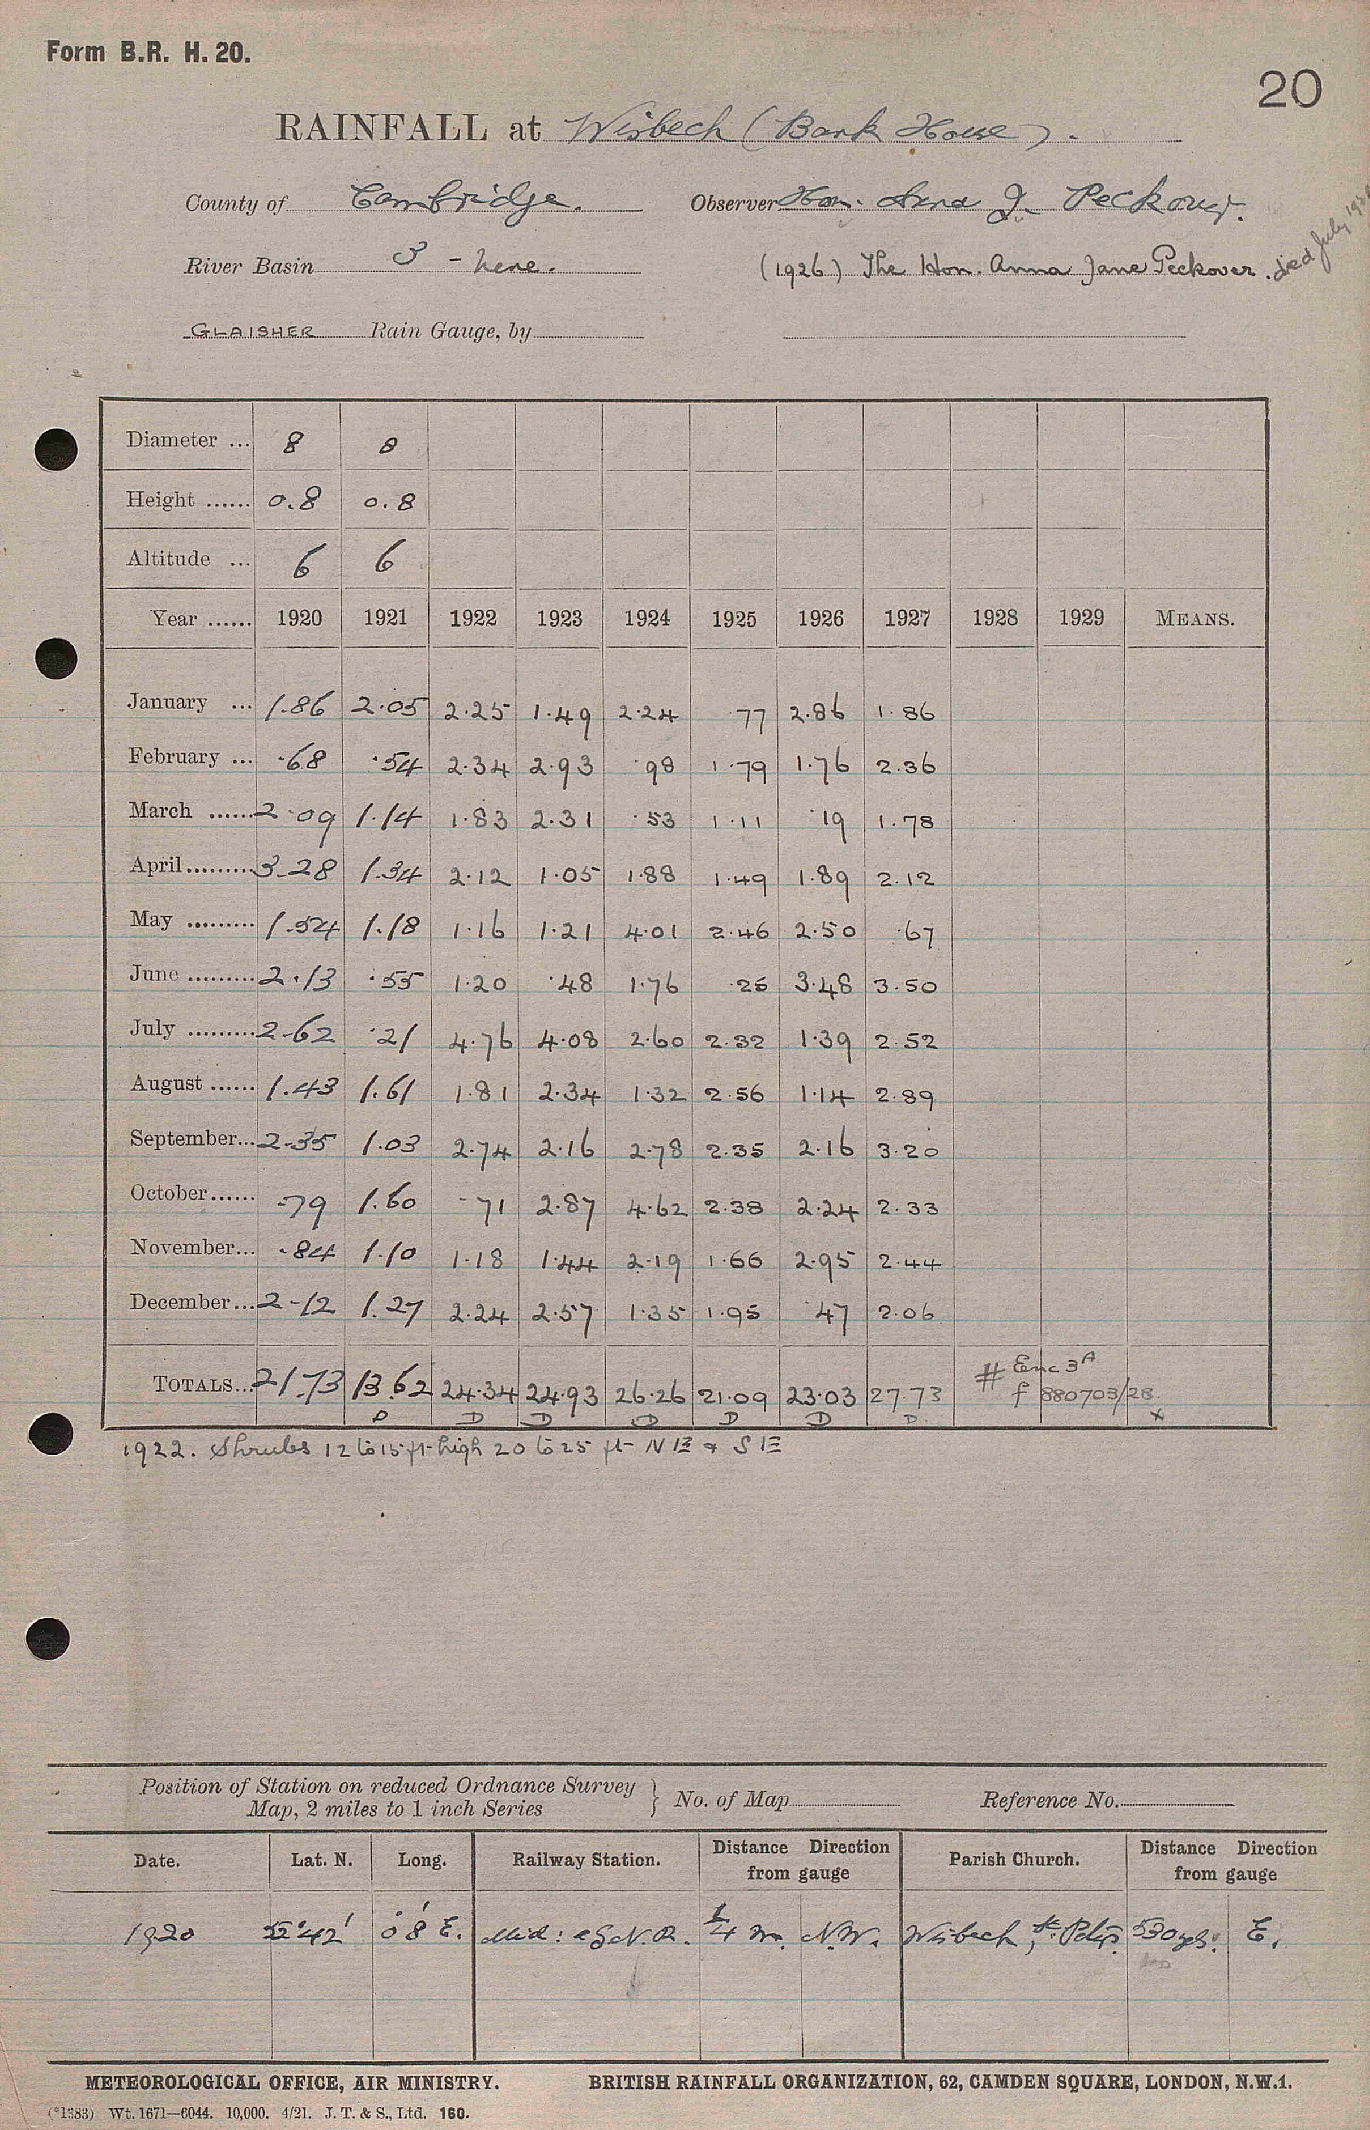 Form B.R. H. 20.
20
RAINFALL at Wisbech (Bank House).
County of Cambridge. Observer Hon. Anna J. Peckover.
River Basin 3 - here. (1926) The Hon. Anna Jane Peckover. died July
GLAISHER Rain Gauge, by
Diameter ... 8 8
Height ...... 0.8 0.8
Altitude ... 6 6
Year ...... 1920 1921 1922 1923 1924 1925 1926 1927 1928 1929 MEANS.
January ... 1.86 2.05 2.25 1.49 2.24 .77 2.86 1.86
February ... .68 .54 2.34 2.93 .98 1.79 1.76 2.36
March ...... 2.09 1.14 1.83 2.31 .53 1.11 .19 1.78
April ......... 3.28 1.34 2.12 1.05 1.88 1.49 1.89 2.12
May ......... 1.54 1.18 1.16 1.21 4.01 2.46 2.50 .67
June ......... 2.13 .55 1.20 .48 1.76 .25 3.48 3.50
July ......... 2.62 .21 4.76 4.08 2.60 2.32 1.39 2.52
August ...... 1.43 1.61 1.81 2.34 1.32 2.56 1.14 2.89
September... 2.35 1.03 2.74 2.16 2.78 2.35 2.16 3.20
October...... .79 1.60 .71 2.87 4.62 2.38 2.24 2.33
November... .84 1.10 1.18 1.44 2.19 1.66 2.95 2.44
December... 2.12 1.27 2.24 2.57 1.35 1.95 .47 2.06
# Enc 3A
TOTALS... 21.73 13.62 24.34 24.93 26.26 21.09 23.03 27.73 f 880703/28
D D D D D D D x
1922. Shrubs 12 to 15 ft high 20 to 25 ft NE & SE
Position of Station on reduced Ordnance Survey
Map, 2 miles to 1 inch Series } No. of Map Reference No.
Date. Lat. N. Long. Railway Station. Distance Direction from gauge Parish Church. Distance Direction from gauge
1920 52°42' 0°8' E. Mid: & G.N.R. 1/4 m. N.W. Wisbech, St. Peter 530 yds. E.
METEOROLOGICAL OFFICE, AIR MINISTRY. BRITISH RAINFALL ORGANIZATION, 62, CAMDEN SQUARE, LONDON, N.W.1.
(*1383) Wt. 1671—6044. 10,000. 4/21. J. T. & S., Ltd. 160.